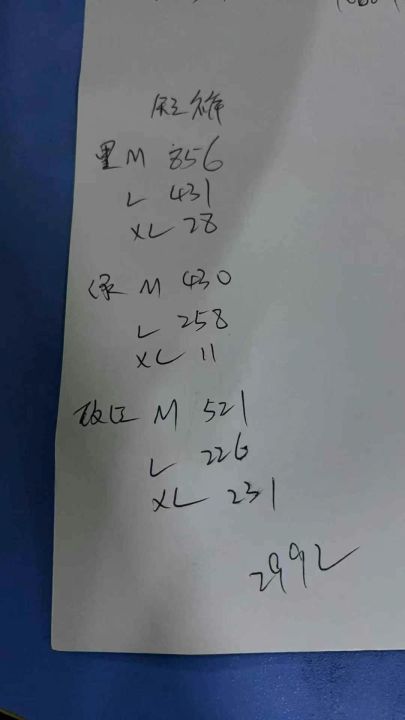 黑 M 856
L 431
XL 28
绿 M 430
L 258
XL 11
玫红 M 521
L 226
XL 231
2992